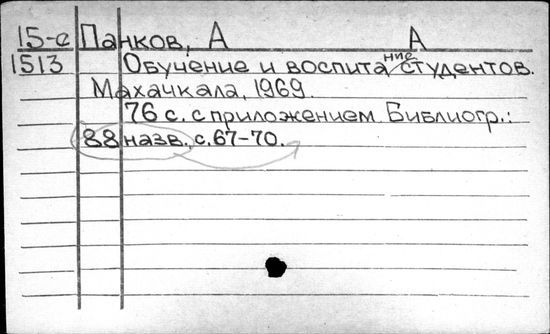 15-е Панков, А А
1513 Обучение и воспитание студентов.
Махачкала, 1969.
76 с. с приложением. Библиогр.:
88 назв., с. 67-70.